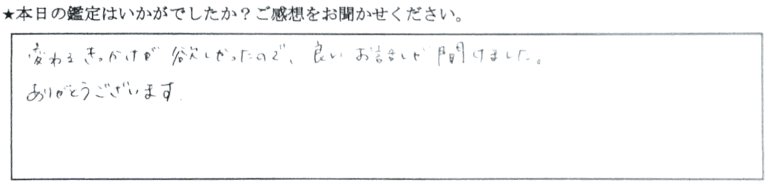 ★本日の鑑定はいかがでしたか？ご感想をお聞かせください。
変わるきっかけが欲しかったので、良いお話しが聞けました。
ありがとうございます